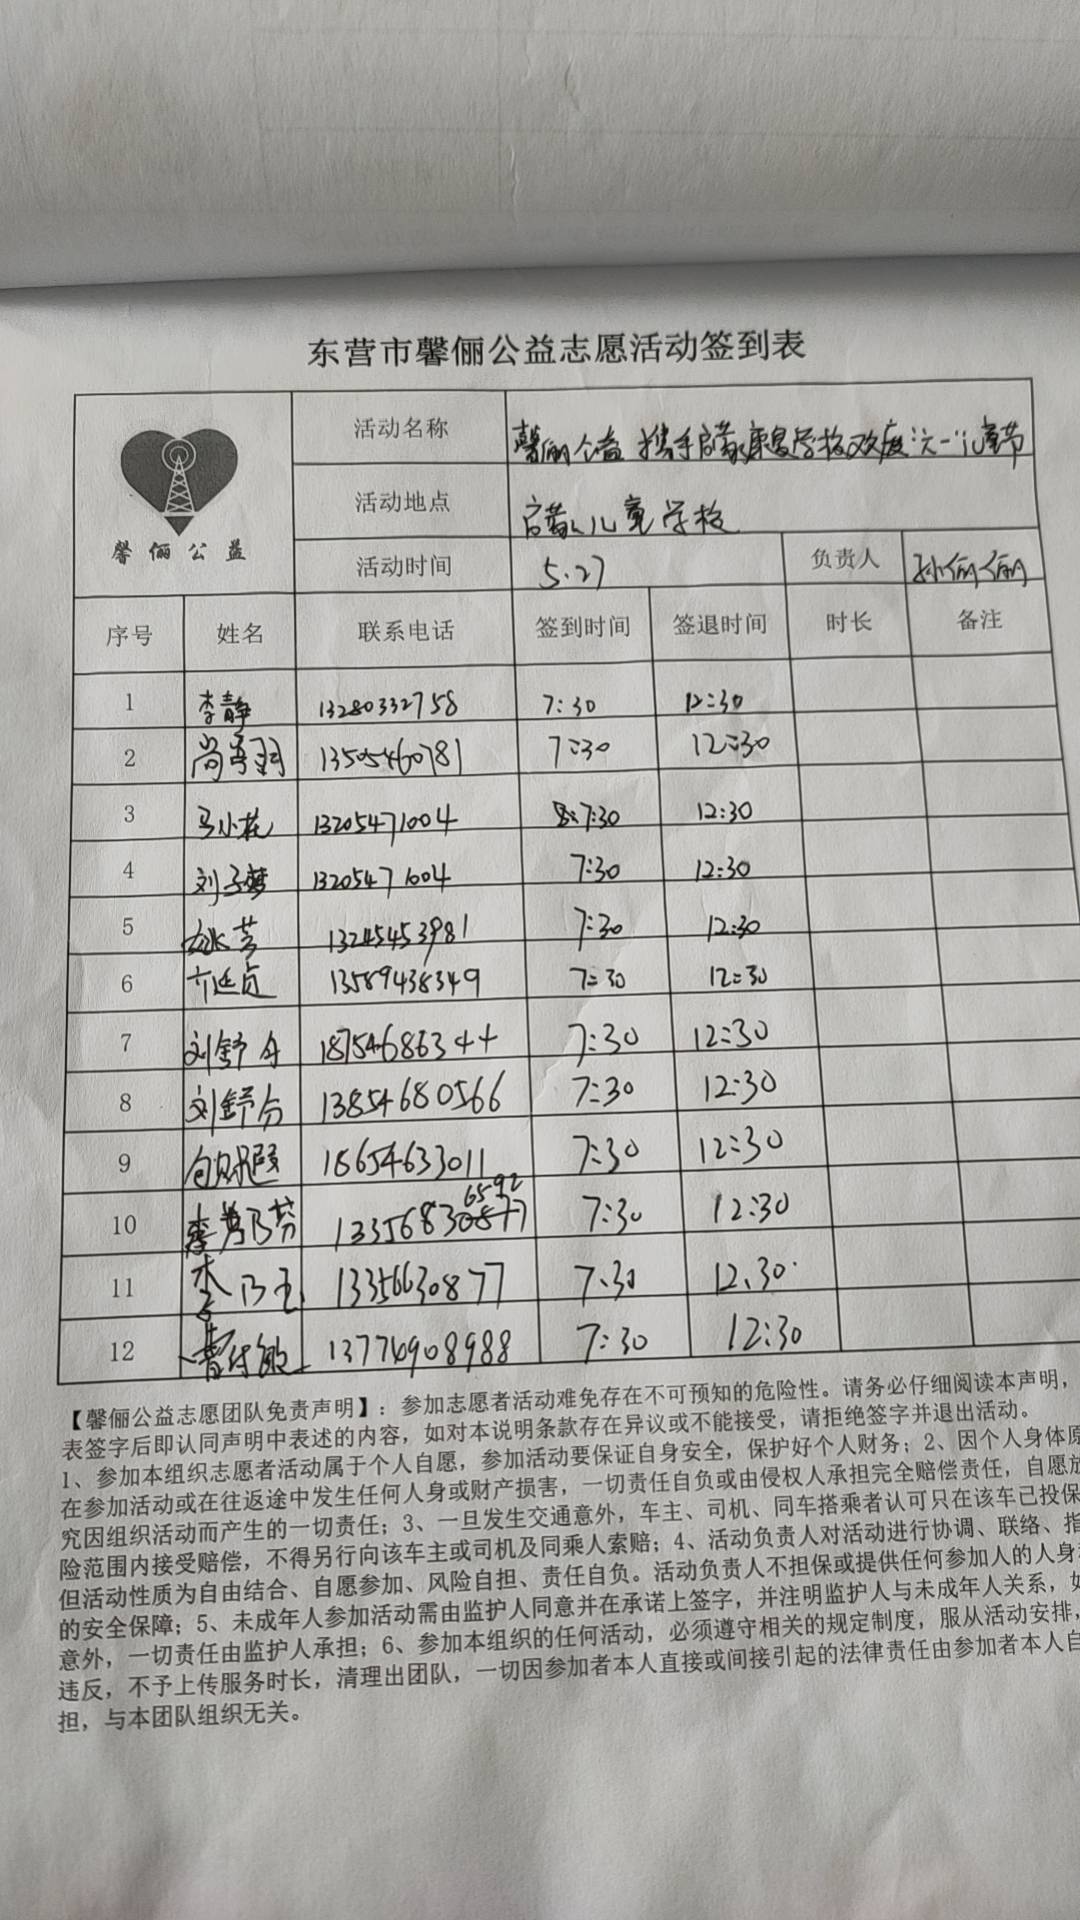 东营市馨俪公益志愿活动签到表
馨俪公益
活动名称 馨俪公益携手启蒙康复学校欢度六一儿童节
活动地点 启蒙儿童学校
活动时间 5.27 负责人 孙俪俪
序号 姓名 联系电话 签到时间 签退时间 时长 备注
1 李静 13280332758 7:30 12:30
2 尚 13505460781 7:30 12:30
3 马小花 13205471004 7:30 12:30
4 刘子梦 13205471004 7:30 12:30
5 姚芳 13245453981 7:30 12:30
6 13589438349 7:30 12:30
7 刘舒丹 18754686344 7:30 12:30
8 刘舒 13854680566 7:30 12:30
9 18654633011 7:30 12:30
10 7:30 12:30
11 李乃玉 13356630877 7:30 12:30
12 7:30 12:30
【馨俪公益志愿团队免责声明】:参加志愿者活动难免存在不可预知的危险性。请务必仔细阅读本声明,
表签字后即认同声明中表述的内容,如对本说明条款存在异议或不能接受,请拒绝签字并退出活动。
1、参加本组织志愿者活动属于个人自愿,参加活动要保证自身安全,保护好个人财务;2、因个人身体原
在参加活动或在往返途中发生任何人身或财产损害,一切责任自负或由侵权人承担完全赔偿责任,自愿放
究因组织活动而产生的一切责任;3、一旦发生交通意外,车主、司机、同车搭乘者认可只在该车已投保
险范围内接受赔偿,不得另行向该车主或司机及同乘人索赔;4、活动负责人对活动进行协调、联络、指
但活动性质为自由结合、自愿参加、风险自担、责任自负。活动负责人不担保或提供任何参加人的人身
的安全保障;5、未成年人参加活动需由监护人同意并在承诺上签字,并注明监护人与未成年人关系,如
意外,一切责任由监护人承担;6、参加本组织的任何活动,必须遵守相关的规定制度,服从活动安排,
违反,不予上传服务时长,清理出团队,一切因参加者本人直接或间接引起的法律责任由参加者本人自
担,与本团队组织无关。